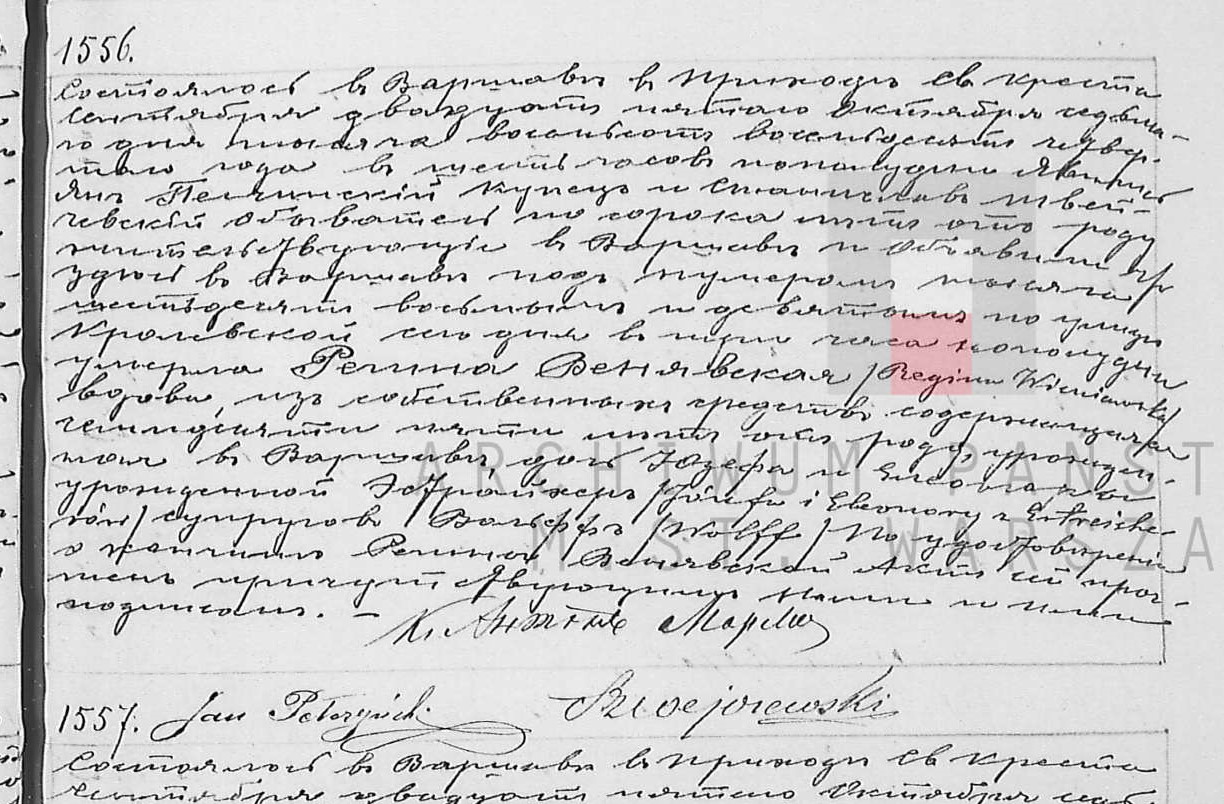 1556.
Состоялось въ Варшавѣ въ Приходѣ Св Креста
Сентября двадцать пятаго Октября седьма-
го дня тысяча восемьсотъ восемьдесятъ четвер-
таго года въ шесть часовъ пополудни Явились
Янъ Петчинскій Купецъ и Станиславъ Швей-
чевскій Обыватель по сорока лѣтъ отъ роду
жительствующіе въ Варшавѣ и Объявили что
здѣсь въ Варшавѣ подъ нумеромъ тысяча
шестьдесятъ восьмымъ и девятымъ по улицѣ
Кролевской сего дня въ три часа пополудни
умерла Регина Венявская /Regina Wieniawska/
вдова, изъ собственныхъ средствъ содержащаяся
семидесяти пяти лѣтъ отъ роду, урожден-
ная въ Варшавѣ, дочь Юзефа и Элеоноры
урожденной Эстрайхеръ /Józefa i Eleonory z Estreiche-
rów/ супруговъ Вольффъ /Wolff/ По удостовѣреніи
о кончинѣ Регины Венявской Актъ сей проч-
тенъ присутствующимъ Нами и ими
подписанъ. —
К. Антонъ
1557. Jan
Состоялось въ Варшавѣ въ Приходѣ Св Креста
Сентября двадцать пятаго Октября седь
ARCHIWUM PAŃST
M. ST. WARSZA